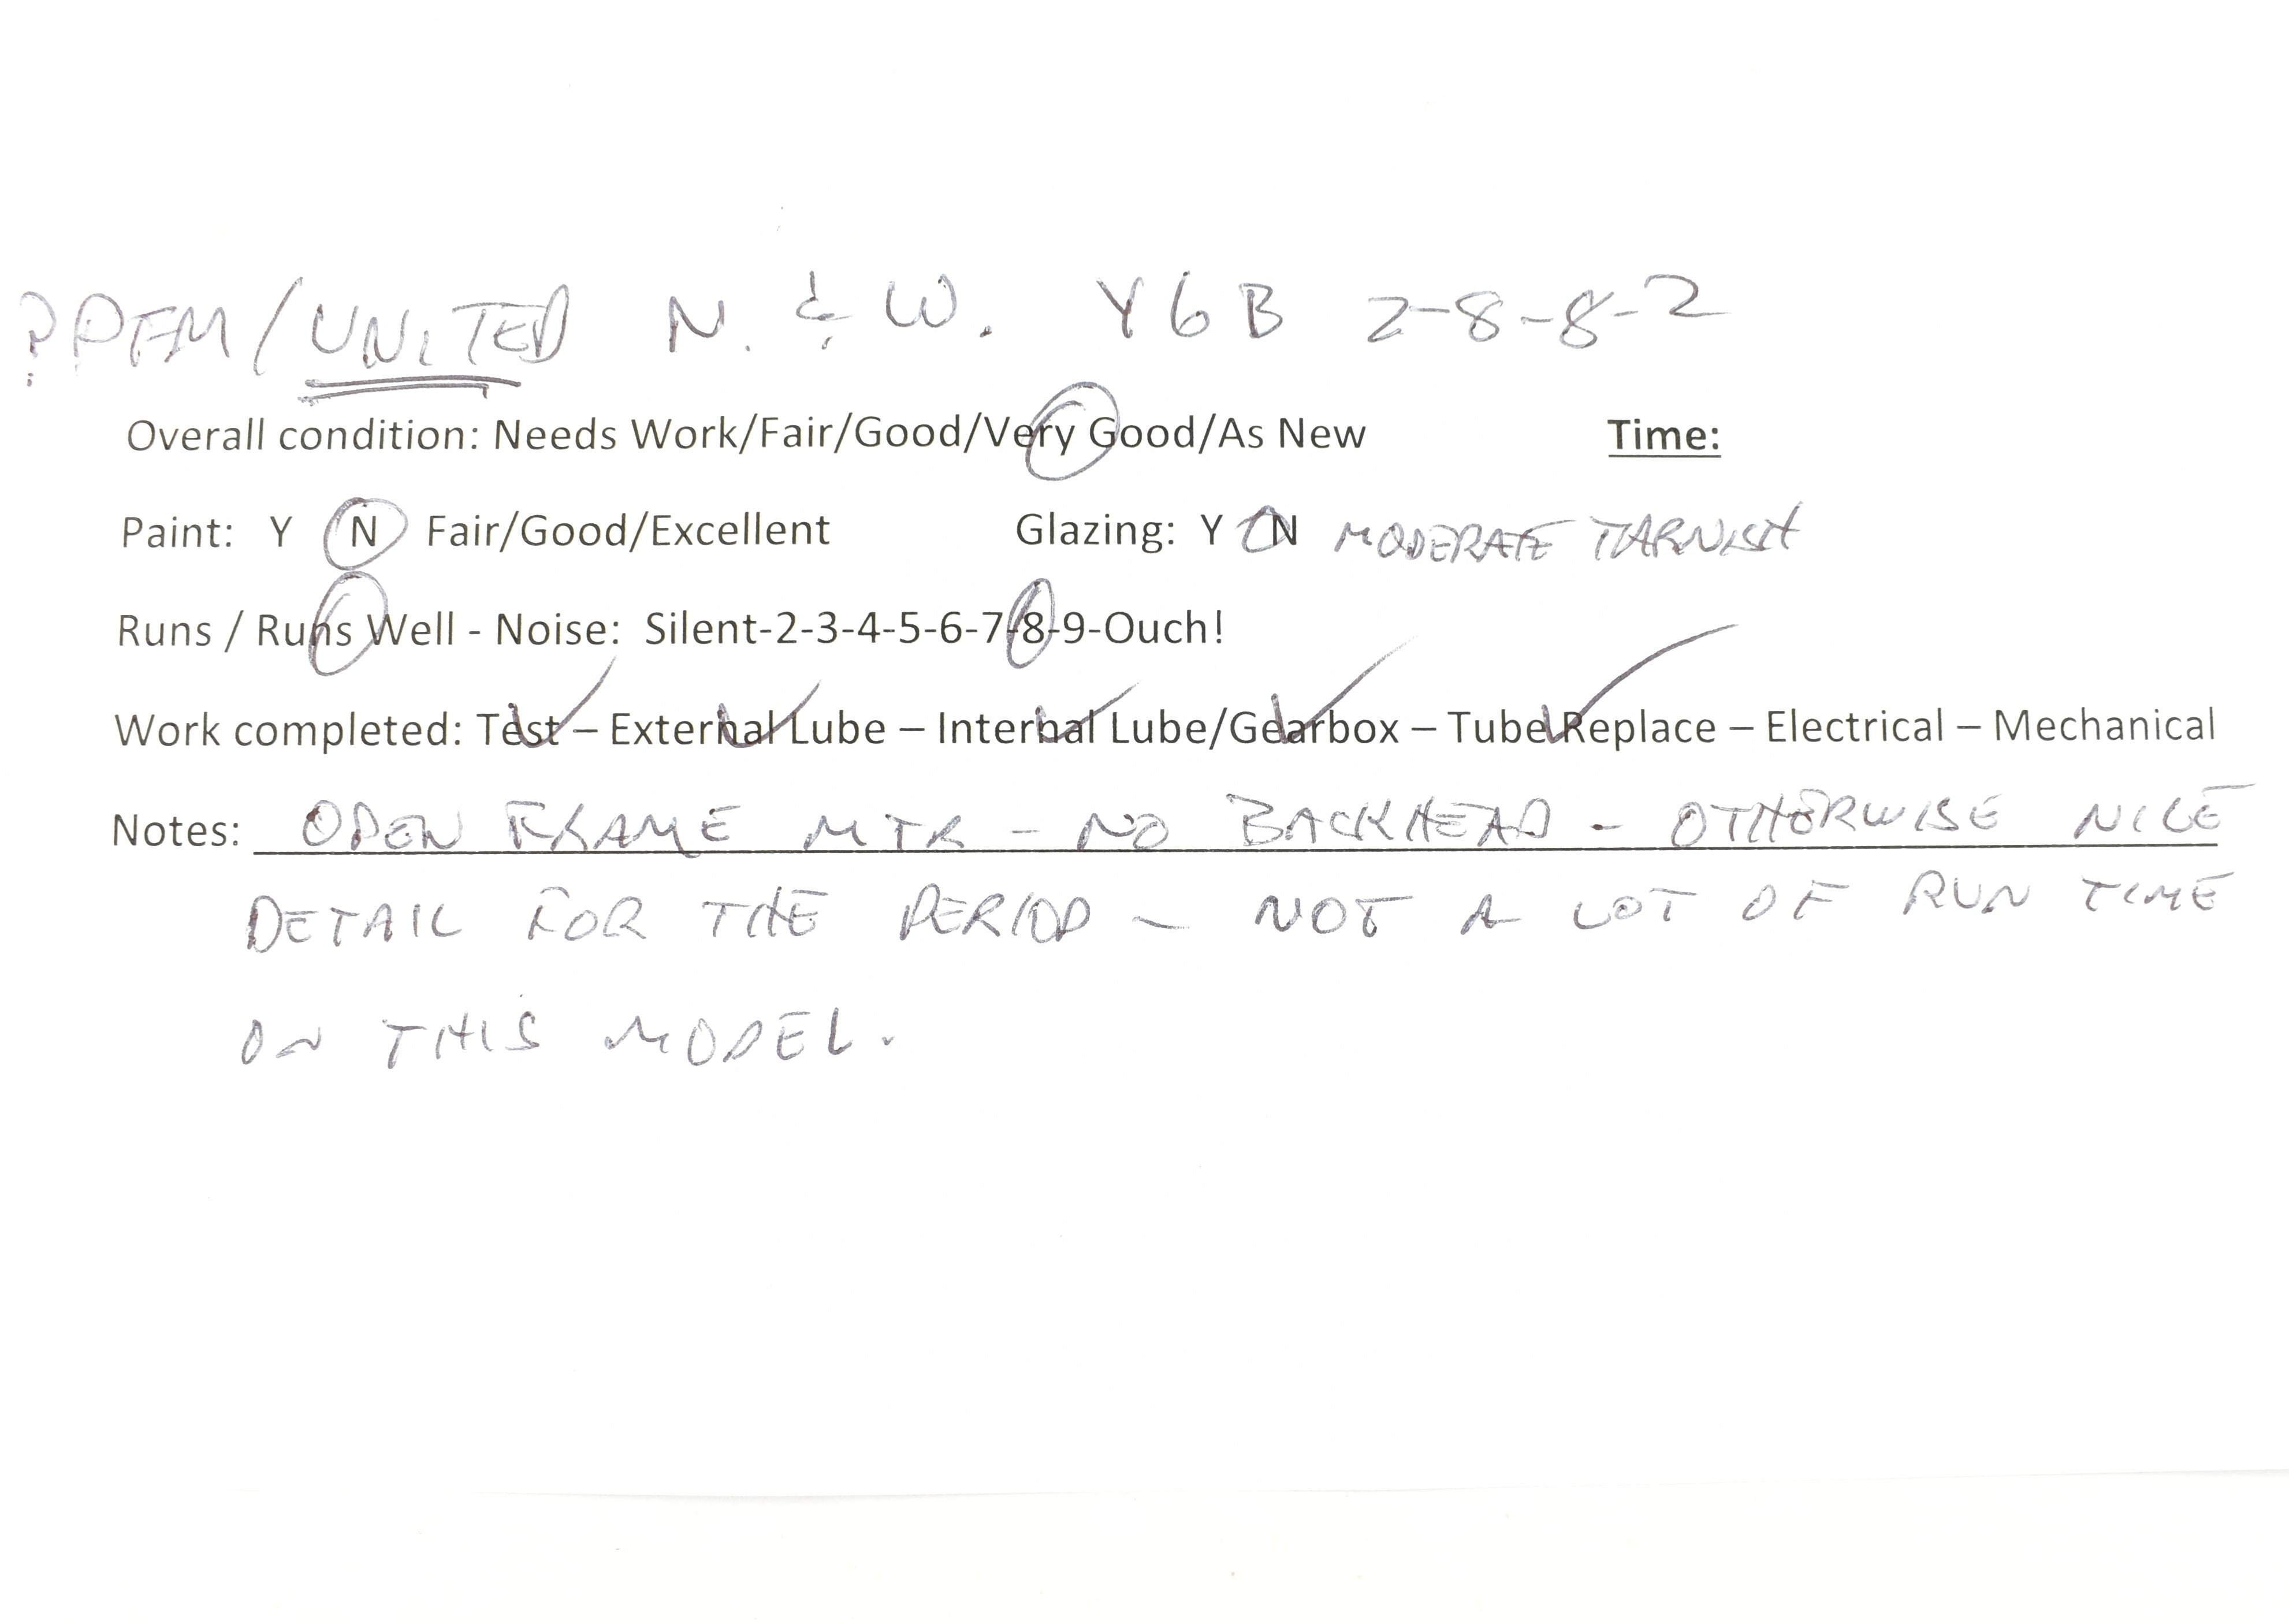 ?PFM/UNITED N. & W. Y6B 2-8-8-2
Overall condition: Needs Work/Fair/Good/Very Good/As New Time:
Paint: Y N Fair/Good/Excellent Glazing: Y N MODERATE TARNISH
Runs / Runs Well - Noise: Silent-2-3-4-5-6-7-8-9-Ouch!
Work completed: Test – External Lube – Internal Lube/Gearbox – Tube Replace – Electrical – Mechanical
Notes: OPEN FRAME MTR - NO BACKHEAD - OTHERWISE NICE
DETAIL FOR THE PERIOD - NOT A LOT OF RUN TIME
ON THIS MODEL.